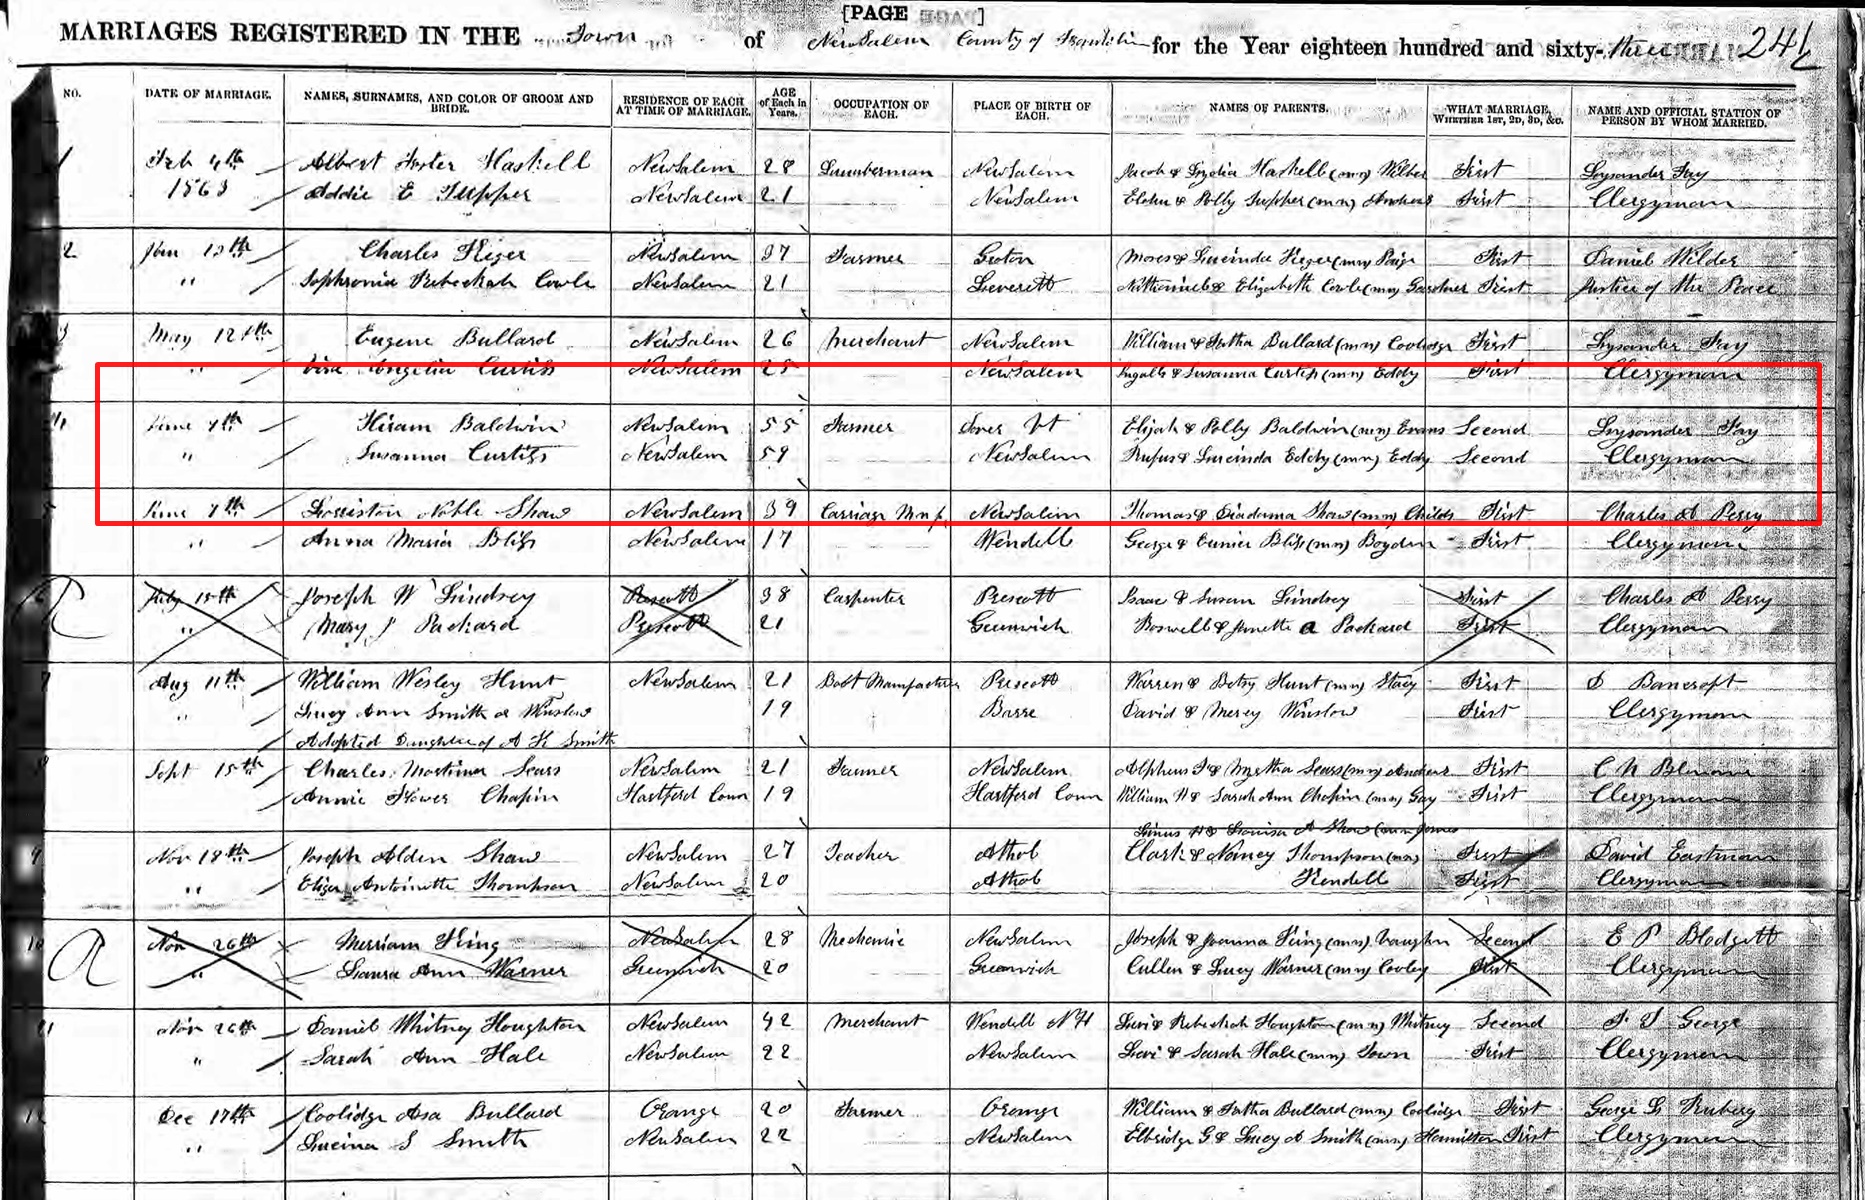 [PAGE ]
MARRIAGES REGISTERED IN THE Town of New Salem County of Franklin for the Year eighteen hundred and sixty-three 241
NO. DATE OF MARRIAGE. NAMES, SURNAMES, AND COLOR OF GROOM AND BRIDE. RESIDENCE OF EACH AT TIME OF MARRIAGE. AGE of Each in Years. OCCUPATION OF EACH. PLACE OF BIRTH OF EACH. NAMES OF PARENTS. WHAT MARRIAGE, WHETHER 1ST, 2D, 3D, &c. NAME AND OFFICIAL STATION OF PERSON BY WHOM MARRIED.
1 Feb 4th Albert Foster Haskell New Salem 28 Lumberman New Salem Jacob & Lydia Haskell (mn) Wilber First Lysander Fay
1863 Addie E Tupper New Salem 21 New Salem Elihu & Polly Tupper (mn) Andrews First Clergyman
2 Jan 13th Charles New Salem 37 Farmer Groton Moses & Lucinda (mn) Paige First Daniel Wilder
" Sophronia Rebeckah Cowls New Salem 21 Leverett & Elizabeth Cowls (mn) Gardner First Justice of the Peace
3 May 12th Eugene Bullard New Salem 26 Merchant New Salem William & Bullard (mn) Coolidge First Lysander Fay
" Angelia Curtiss New Salem 25 New Salem Ingalls & Susanna Curtiss (mn) Eddy First Clergyman
4 June 7th Hiram Baldwin New Salem 55 Farmer Dover Vt Elijah & Polly Baldwin (mn) Evans Second Lysander Fay
" Susanna Curtiss New Salem 59 New Salem Rufus & Lucinda Eddy (mn) Eddy Second Clergyman
5 June 7th Noble Shaw New Salem 39 Carriage Manf New Salem Thomas & Diadama Shaw (mn) Childs First Charles D Perry
" Anna Maria Bliss New Salem 17 Wendell George & Eunice Bliss (mn) Boyden First Clergyman
6 July 15th Joseph W Lindsey Prescott 38 Carpenter Prescott Isaac & Susan Lindsey First Charles D Perry
" Mary J Packard Prescott 21 Greenwich Roswell & Janette A Packard First Clergyman
7 Aug 11th William Wesley Hunt New Salem 21 Boot Manufacturer Prescott Warren & Betsy Hunt (mn) Stacy First D Bancroft
" Lucy Ann Smith or Winslow 19 Barre David & Mercy Winslow First Clergyman
Adopted Daughter of A K Smith
8 Sept 15th Charles Mortimer Sears New Salem 21 Farmer New Salem Alpheus & Sears (mn) Andrews First C N
Annie Flower Chapin Hartford Conn 19 Hartford Conn William H & Sarah Ann Chapin (mn) Gay First Clergyman
Linus H & Louisa A Shaw (mn) Jones
9 Nov 18th Joseph Alden Shaw New Salem 27 Teacher Athol Clark & Nancy Thompson (mn) First David Eastman
" Eliza Antoinette Thompson New Salem 20 Athol Kendell First Clergyman
10 Nov 26th Merriam King New Salem 28 Mechanic New Salem Joseph & Joanna King (mn) Vaughn Second E P Blodgett
" Laura Ann Warner Greenwich 20 Greenwich Cullen & Lucy Warner (mn) Cooley First Clergyman
11 Nov 26th Daniel Whitney Houghton New Salem 42 Merchant Wendell NH Levi & Rebeckah Houghton (mn) Whitney Second George
" Sarah Ann Hale New Salem 22 New Salem Levi & Sarah Hale (mn) Town First Clergyman
12 Dec 17th Coolidge Asa Bullard Orange 20 Farmer Orange William & Bullard (mn) Coolidge First George
" Lucina S Smith New Salem 22 New Salem Elbridge G & Lucy A Smith (mn) Hamilton First Clergyman